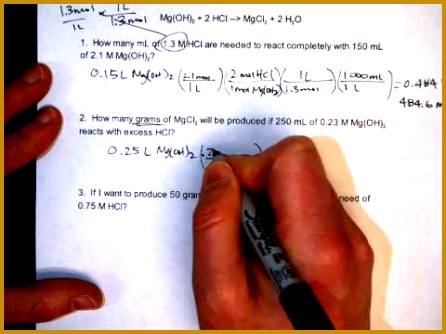 1.3 mol / 1L × 1L / 1.3 mol
Mg(OH)₂ + 2 HCl --> MgCl₂ + 2 H₂O
1. How many mL of 1.3 M HCl are needed to react completely with 150 mL
of 2.1 M Mg(OH)₂?
0.15 L Mg(OH)₂ (2.1 mol / 1 L) (2 mol HCl / 1 mol Mg(OH)₂) (1 L / 1.3 mol) (1000 mL / 1 L) = 0.484
484.6 m
2. How many grams of MgCl₂ will be produced if 250 mL of 0.23 M Mg(OH)₂
reacts with excess HCl?
0.25 L Mg(OH)₂ (
3. If I want to produce 50 gra need of
0.75 M HCl?